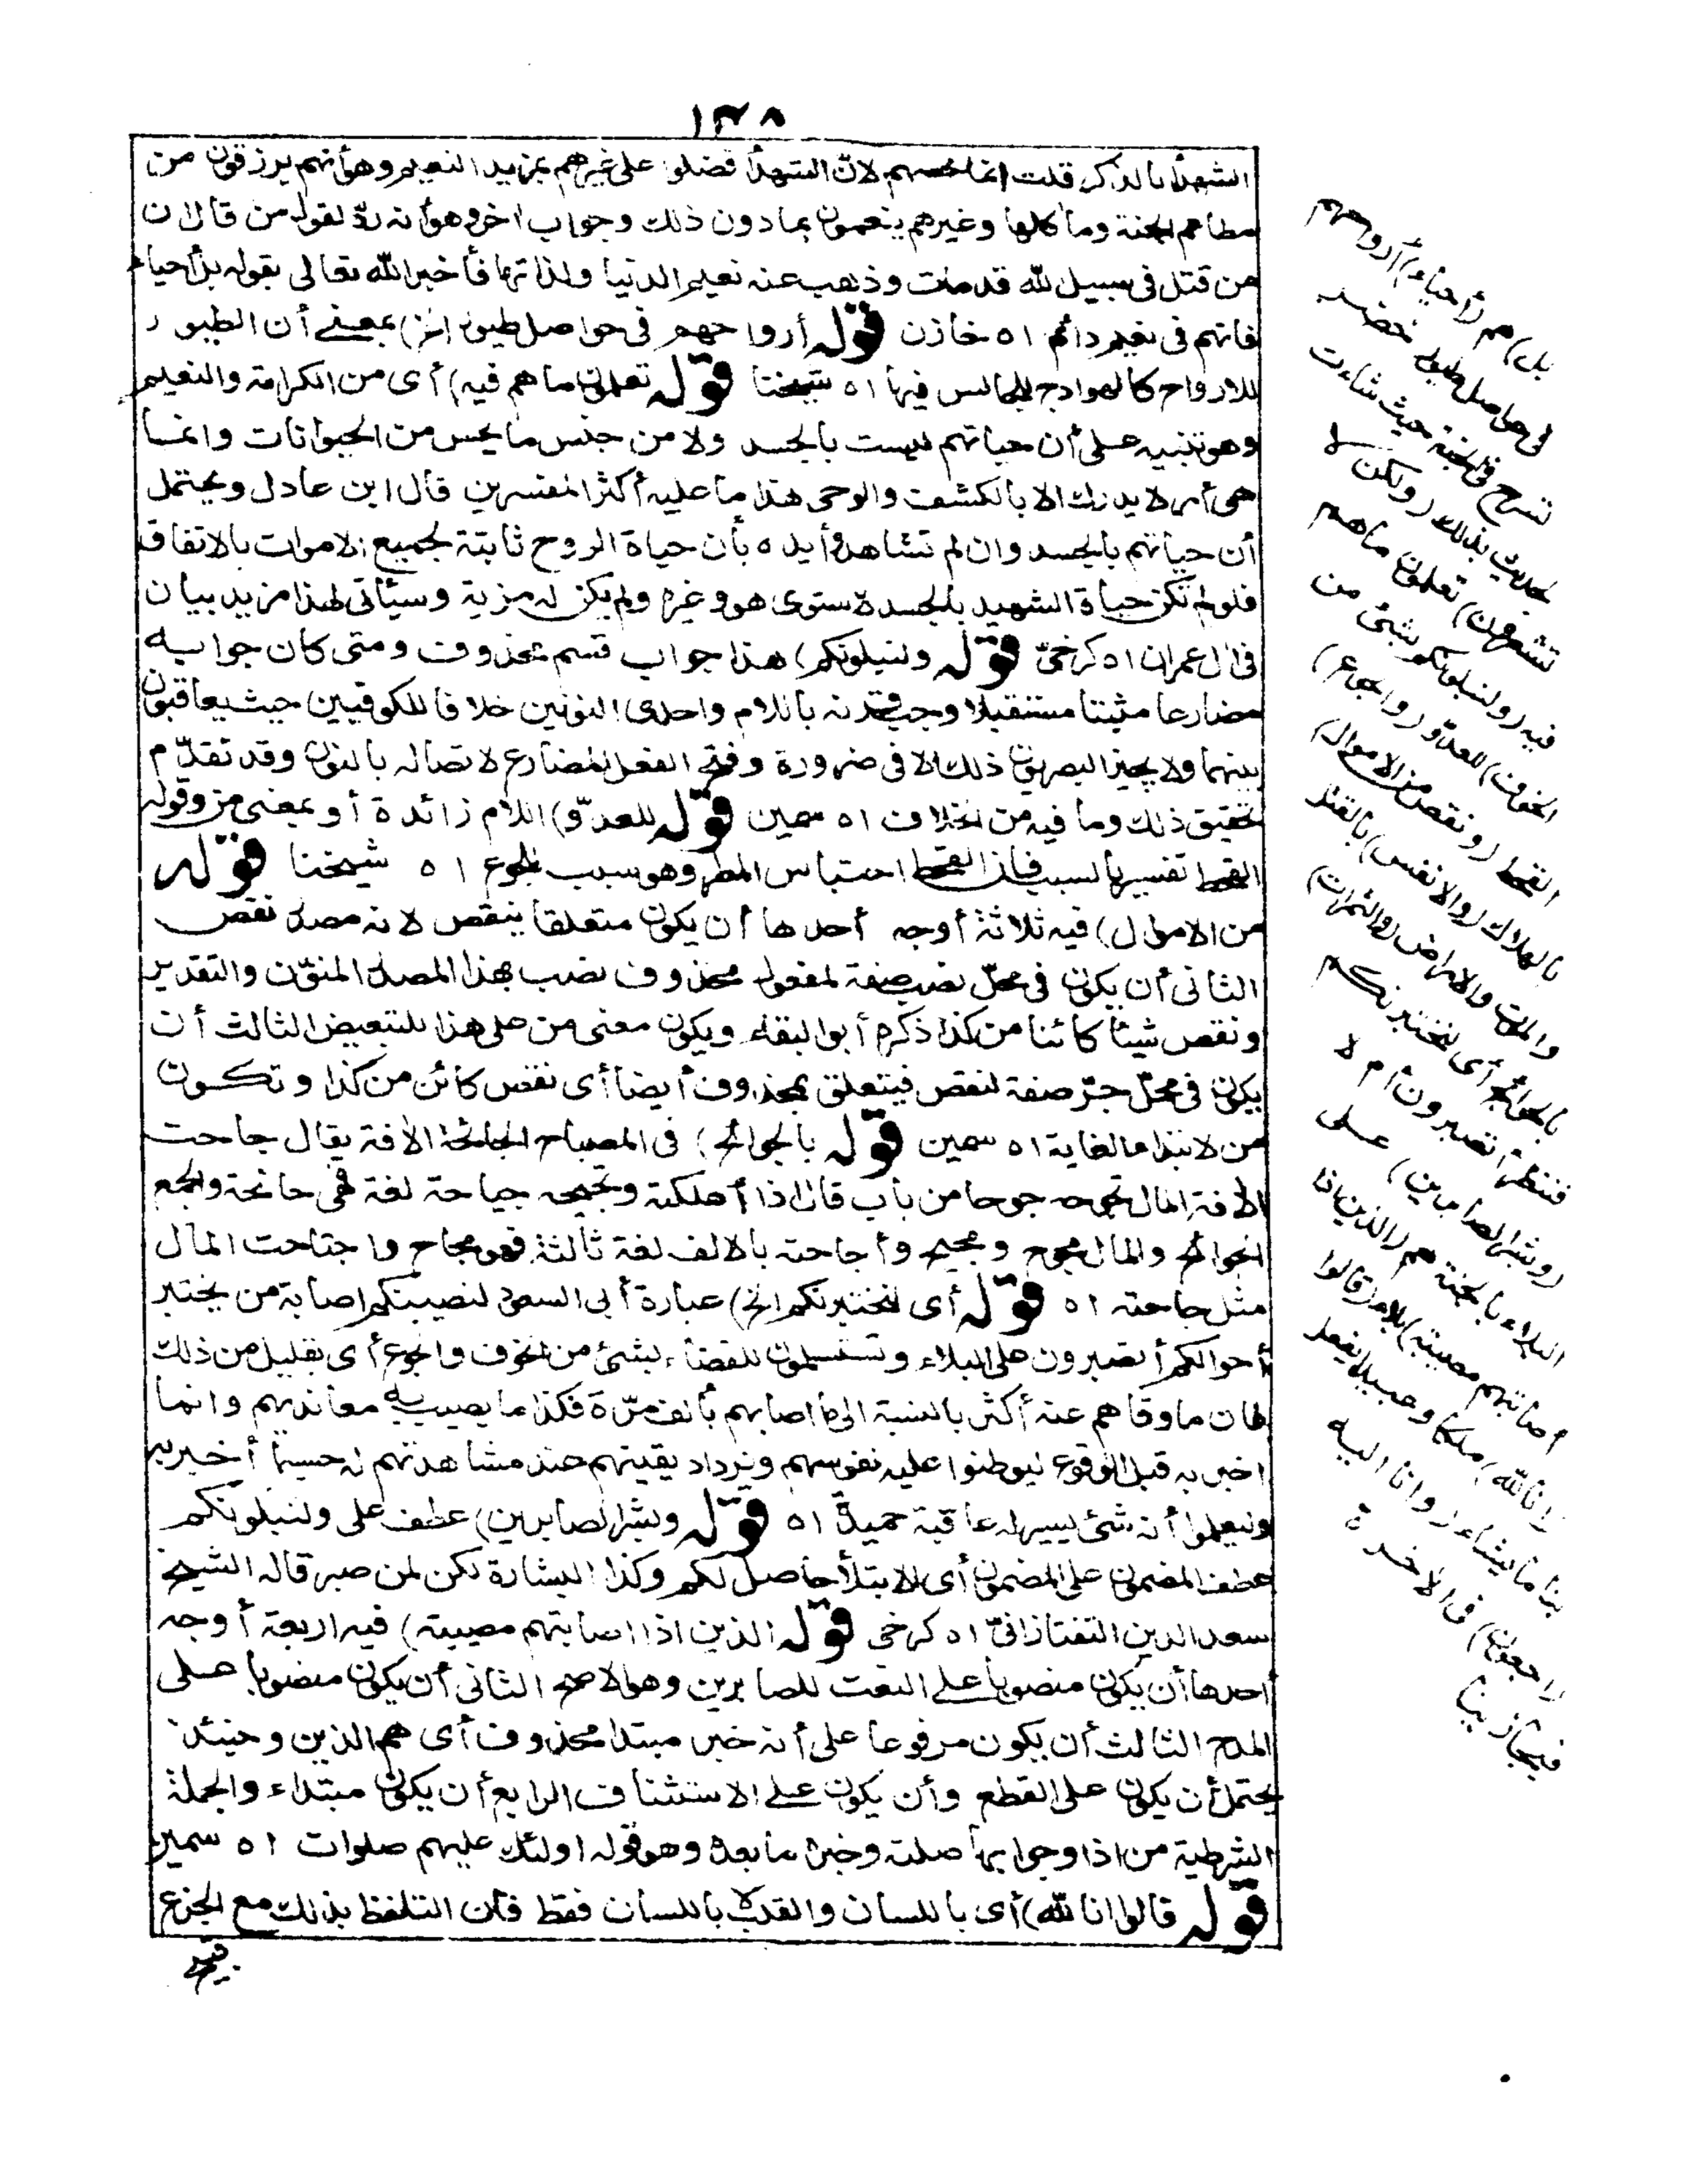 ١٣٨
الشهدأ بالذكر قلت انما خصهم لانّ الشهدأ فضلوا على غيرهم بمزيد النعيم وهو أنهم يرزقون من
مطاعم الجنة ومأكلها وغيرهم ينعمون بمادون ذلك وجواب اخر وهو أنه ردّ لقول من قال ان
من قتل فى سبيل الله قد مات وذهب عنه نعيم الدنيا ولذاتها فأخبر الله تعالى بقوله بل أحياء
فانهم فى نعيم دائم ا ه خازن قوله أرواحهم فى حواصل طيور الخ) بمعنى أن الطيور
للارواح كالهوادج للجالس فيها ا ه شيخنا قوله تعلمون ما هم فيه) أى من الكرامة والنعيم
وهو تنبيه على أن حياتهم ليست بالجسد ولا من جنس ما يحس من الحيوانات وانما
هى أمر لا يدرك الا بالكشف والوحى هذا ما عليه أكثر المفسرين قال ابن عادل ويحتمل
أن حياتهم بالجسد وان لم تشاهد وأيده بأن حياة الروح ثابتة لجميع الاموات بالاتفاق
فلو لم تكن حياة الشهيد بالجسد لاستوى هو وغيره ولم يكن له مزية وسيأتى لهذا مزيد بيان
فى ال عمران ا ه كرخىّ قوله ولنبلونكم) هذا جواب قسم محذوف ومتى كان جوابه
مضارعا مثبتا مستقبلا وجب قرنه باللام واحدى النونين خلافا للكوفيين حيث يعاقبون
بينهما ولا يجيز البصريون ذلك الا فى ضرورة وفتح الفعل المضارع لاتصاله بالنون وقد تقدّم
تحقيق ذلك وما فيه من الخلاف ا ه سمين قوله للعدوّ) اللام زائدة أو بمعنى من وقوله
القحط تفسير بالسبب فان القحط احتباس المطر وهو سبب للجوع ا ه شيخنا قوله
من الاموال) فيه ثلاثة أوجه أحدها أن يكون متعلقا بنقص لانه مصدر نقص
الثانى أن يكون فى محلّ نصب صفة لمفعول محذوف نصب بهذا المصدر المنوّن والتقدير
ونقص شيئا كائنا من كذا ذكره أبو البقاء ويكون معنى من على هذا للتبعيض الثالث أن
يكون فى محلّ جرّ صفة لنقص فيتعلق بمحذوف أيضا أى نقص كائن من كذا وتكون
من لابتداء الغاية ا ه سمين قوله بالجوائح) فى المصباح الجائحة الافة يقال جاحت
الافة المال تجوحه جوحا من باب قال اذا أهلكته وتجيحه جياحة لغة فهى جائحة والجمع
الجوائح والمال مجوح ومجيح وأجاحته بالالف لغة ثالثة فهو مجاح واجتاحت المال
مثل جاحته ا ه قوله أى لنختبرنكم الخ) عبارة أبى السعود لنصيبنكم اصابة من يختبر
أحوالكم أتصبرون على البلاء وتستسلمون للقضاء بشئ من الخوف والجوع أى بقليل من ذلك
فان ما وقاهم عنه أكثر بالنسبة الى ما اصابهم بألف مرّة فكذا ما يصيب به معانديهم وانما
اخبر به قبل الوقوع ليوطنوا عليه نفوسهم ويزداد يقينهم عند مشاهدتهم له حسبما أخبر به
وليعلموا أنه شئ يسير له عاقبة حميدة ا ه قوله وبشر الصابرين) عطف على ولنبلونكم
عطف المضمون على المضمون أى الابتلأ حاصل لكم وكذا البشارة لكن لمن صبر قاله الشيخ
سعد الدين التفتازانىّ ا ه كرخى قوله الذين اذا اصابتهم مصيبة) فيه اربعة أوجه
أحدها أن يكون منصوبا على النعت للصابرين وهو الاصح الثانى أن يكون منصوبا على
المدح الثالث أن يكون مرفوعا على أنه خبر مبتدا محذوف أى هم الذين وحينئذ
يحتمل أن يكون على القطع وأن يكون على الاستئناف الرابع أن يكون مبتداء والجملة
الشرطية من اذا وجوابها صلته وخبره ما بعده وهو قوله اولئك عليهم صلوات ا ه سمين
قوله قالوا انا لله) أى باللسان والقلب لا باللسان فقط فان التلفظ بذلك مع الجزع
بل) هم (أحياء) أرواحهم
فى حواصل طيور خضر
تسرح فى الجنة حيث شاءت
لحديث بذلك (ولكن لا
تشعرون) تعلمون ما هم
فيه (ولنبلونكم بشئ من
الخوف) للعدوّ (والجوع)
القحط (ونقص من الاموال)
بالهلاك (والانفس) بالقتل
والموت والامراض (والثمرات)
بالجوائح أى لنختبرنكم
فننظر أتصبرون أم لا
(وبشر الصابرين) على
البلاء بالجنة هم (الذين اذا
أصابتهم مصيبة) بلاء (قالوا
انا لله) ملكا وعبيدا يفعل
بنا ما يشاء (وانا اليه
راجعون) فى الاخرة
فيجازينا